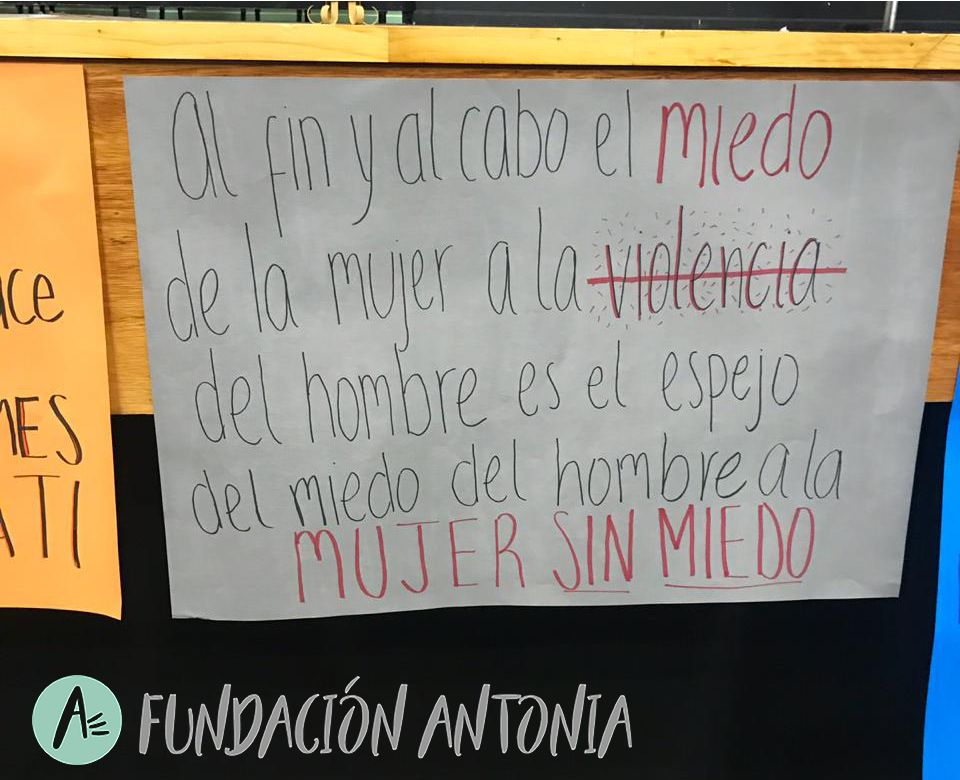 Al fin y al cabo el miedo
de la mujer a la violencia
del hombre es el espejo
del miedo del hombre a la
MUJER SIN MIEDO
ce
MES
A TI
A
FUNDACIÓN ANTONIA